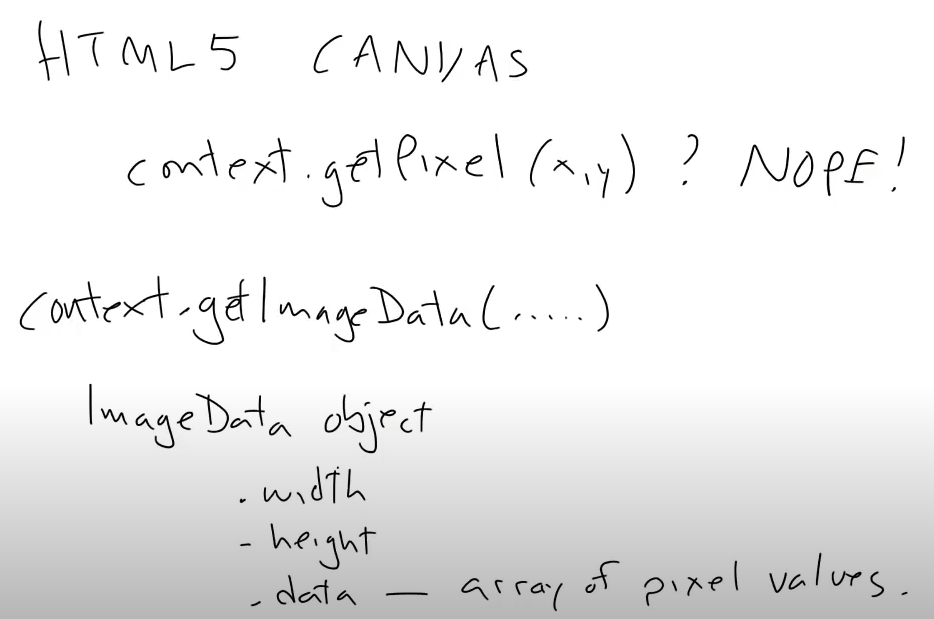 HTML5 CANVAS
context.getPixel(x,y) ? NOPE!
context.getImageData(.....)
ImageData object
. width
- height
. data — array of pixel values.